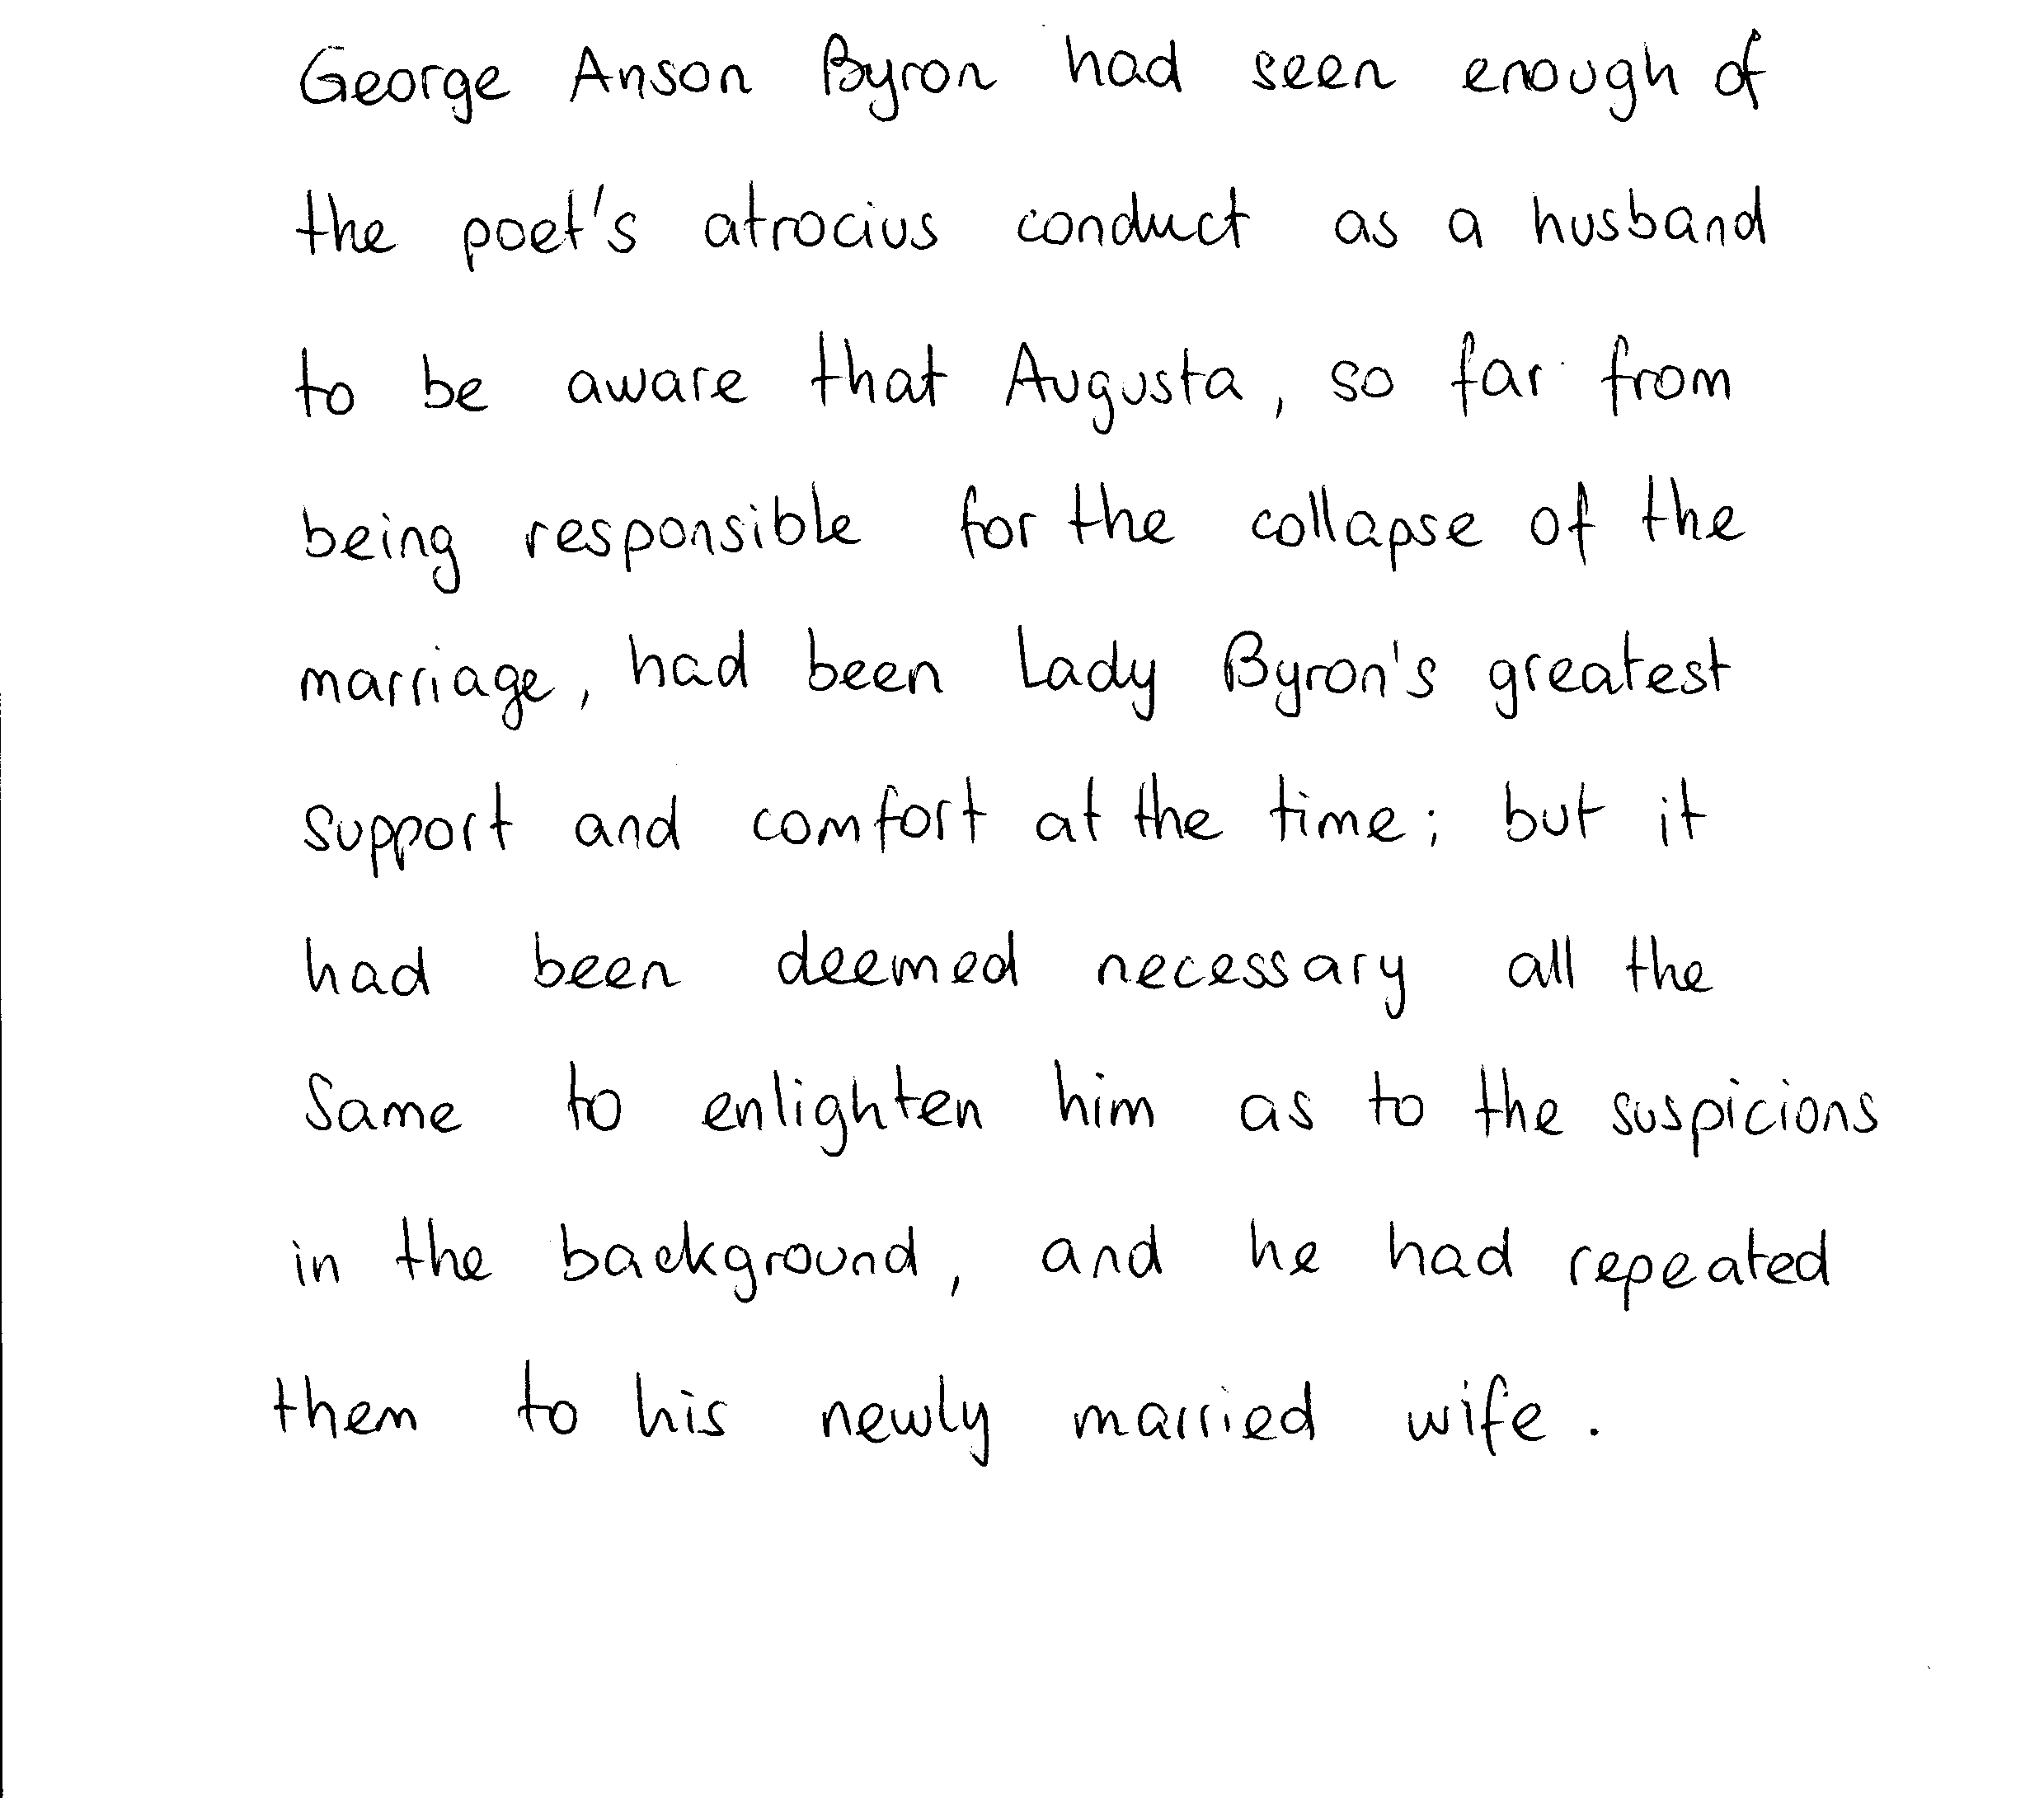 George Anson Byron had seen enough of
the poet's atrocius conduct as a husband
to be aware that Augusta, so far from
being responsible for the collapse of the
marriage, had been Lady Byron's greatest
support and comfort at the time; but it
had been deemed necessary all the
same to enlighten him as to the suspicions
in the background, and he had repeated
them to his newly married wife.